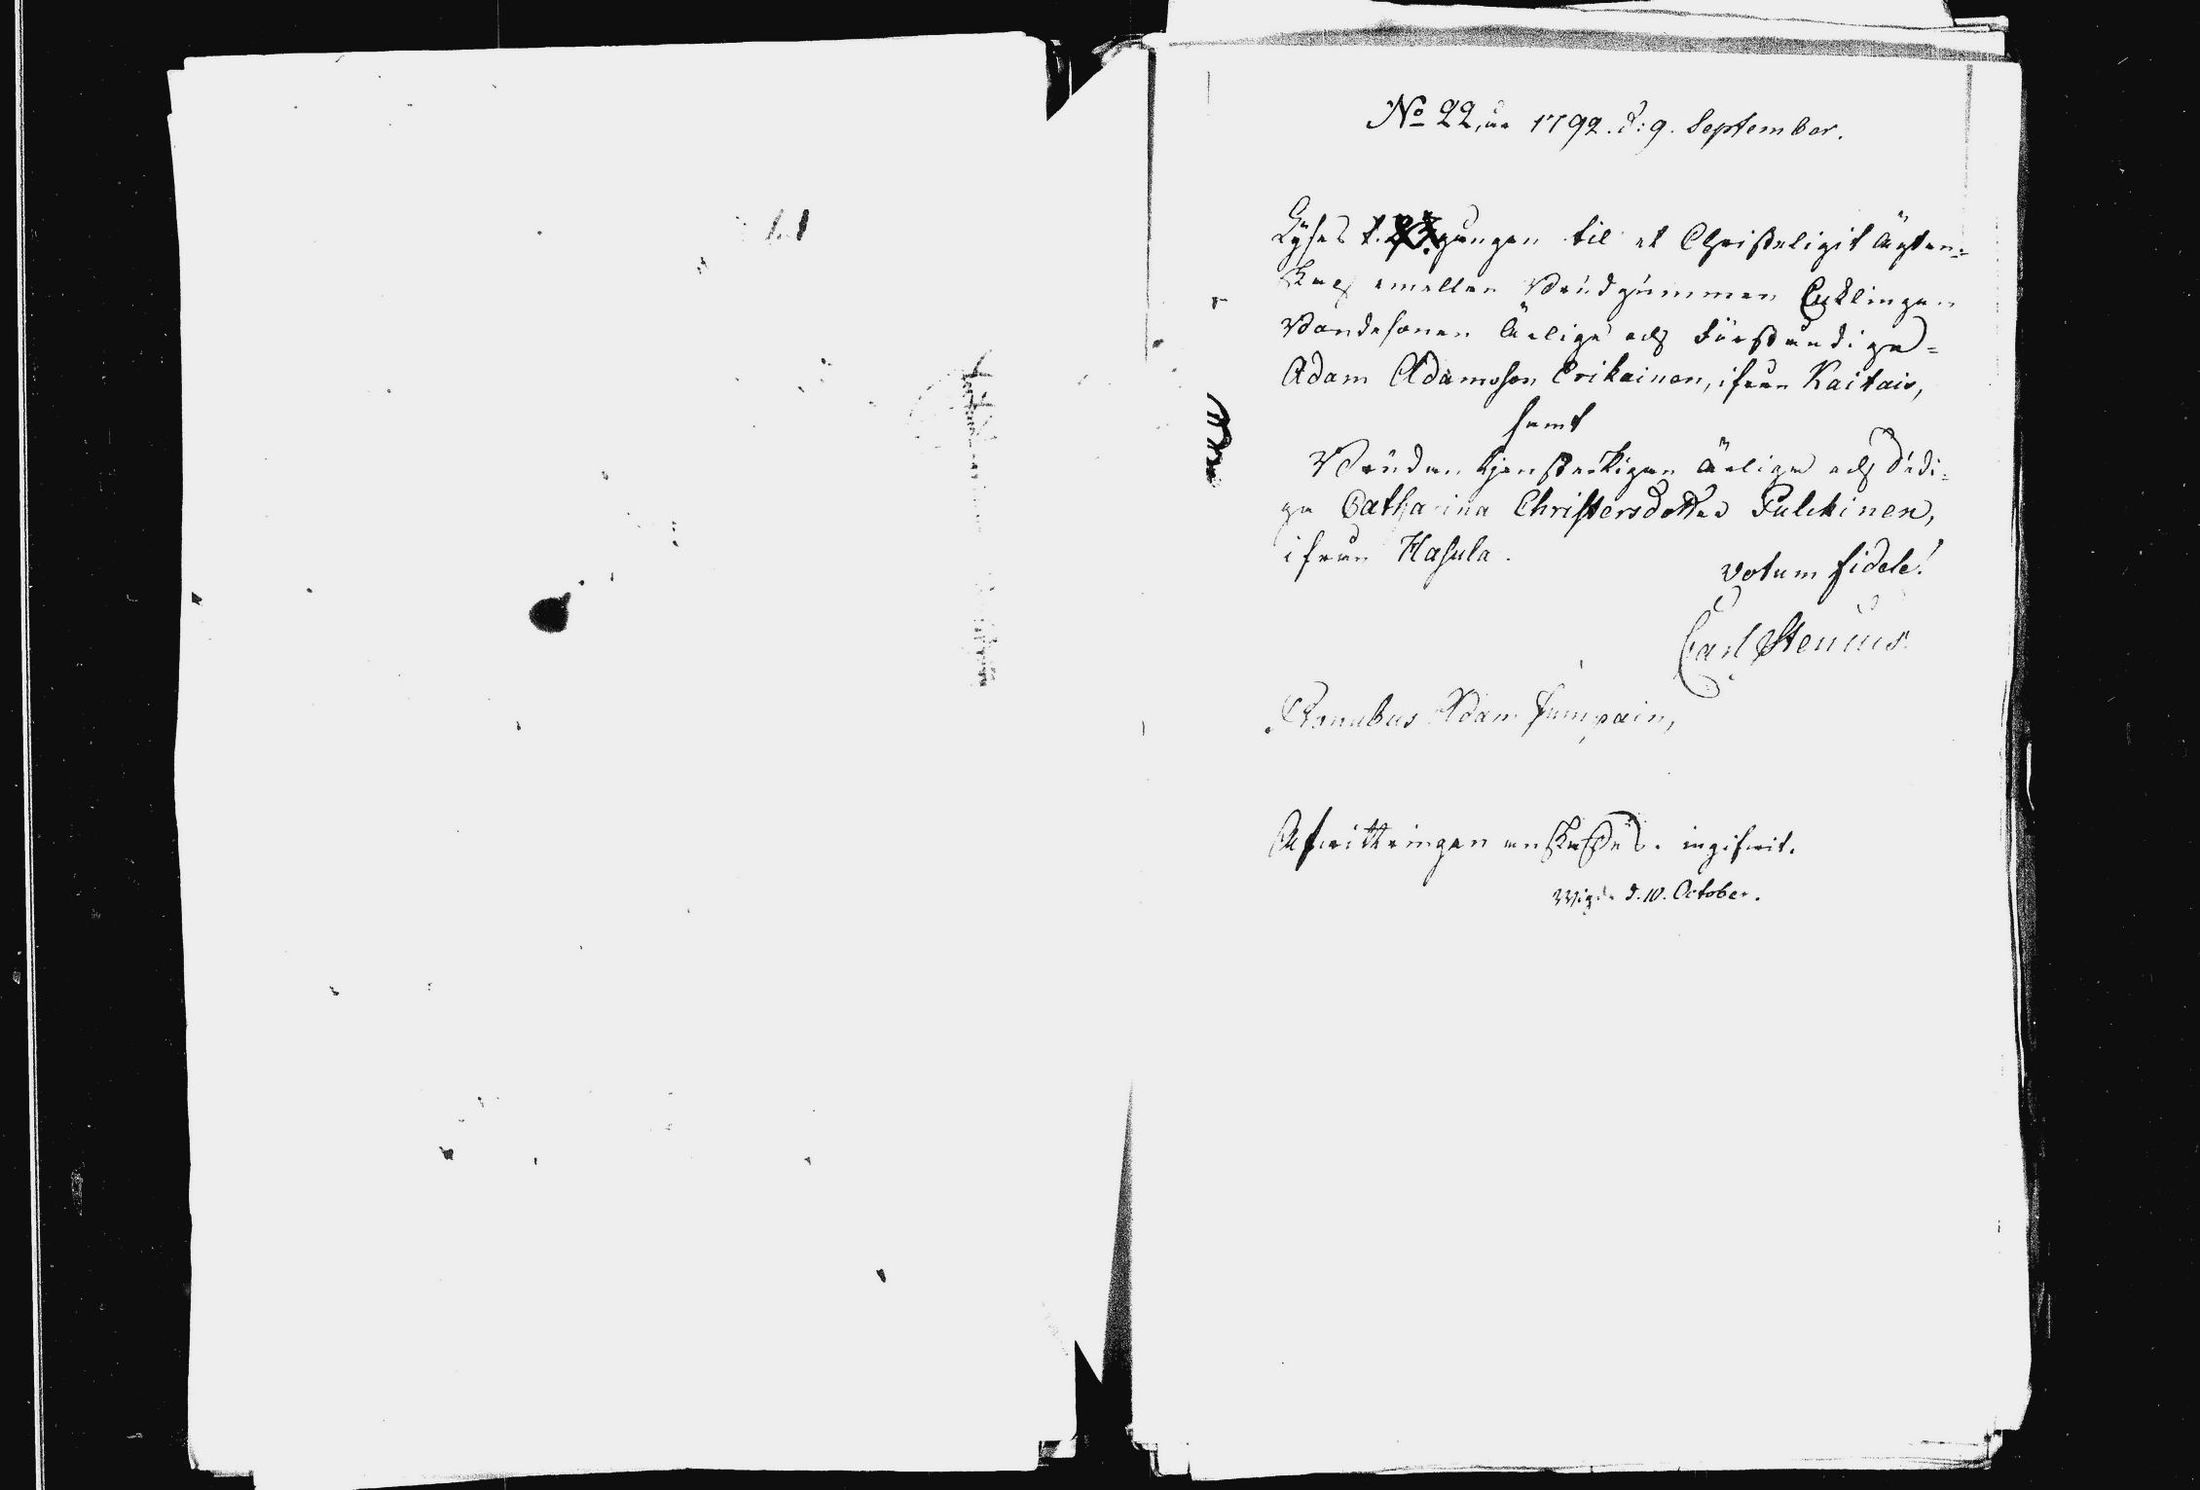 No 22, ao 1792. d: 9. September.
Lyses t. gången til et Christeligit Ägten-
skap emellan Brudgummen Enklingen
Bondesonen ärlige och förståndige
Adam Adamsson Erikainen, ifrån Kaitais,
samt
Bruden tjenstePigan ärliga och dädi-
ga Catharina Christersdotter Pulckinen,
ifrån Hasula.
votum fidele!
Carl Stenius.
Pronubus Adam
Afwittringen en Kasserad. ingifwit.
Wigde d. 10. October.